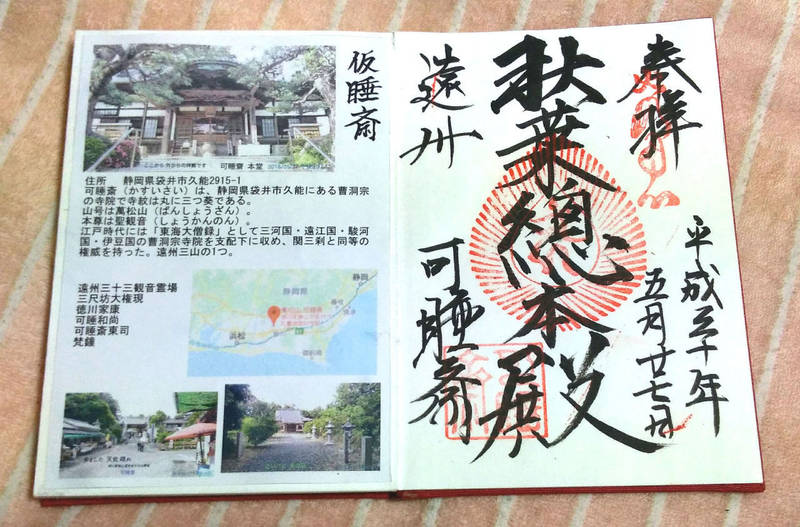 仮睡斎
可睡斎 本堂
住所　静岡県袋井市久能2915-1
可睡斎(かすいさい)は、静岡県袋井市久能にある曹洞宗
の寺院で寺紋は丸に三つ葵である。
山号は萬松山(ばんしょうざん)。
本尊は聖観音(しょうかんのん)。
江戸時代には「東海大僧録」として三河国・遠江国・駿河
国・伊豆国の曹洞宗寺院を支配下に収め、関三刹と同等の
権威を持った。遠州三山の1つ。
遠州三十三観音霊場
三尺坊大権現
徳川家康
可睡和尚
可睡斎東司
梵鐘
静岡県
静岡
浜松
可睡斎
奉拝
平成三十年
五月廿七日
秋葉總本殿
遠州
可睡斎